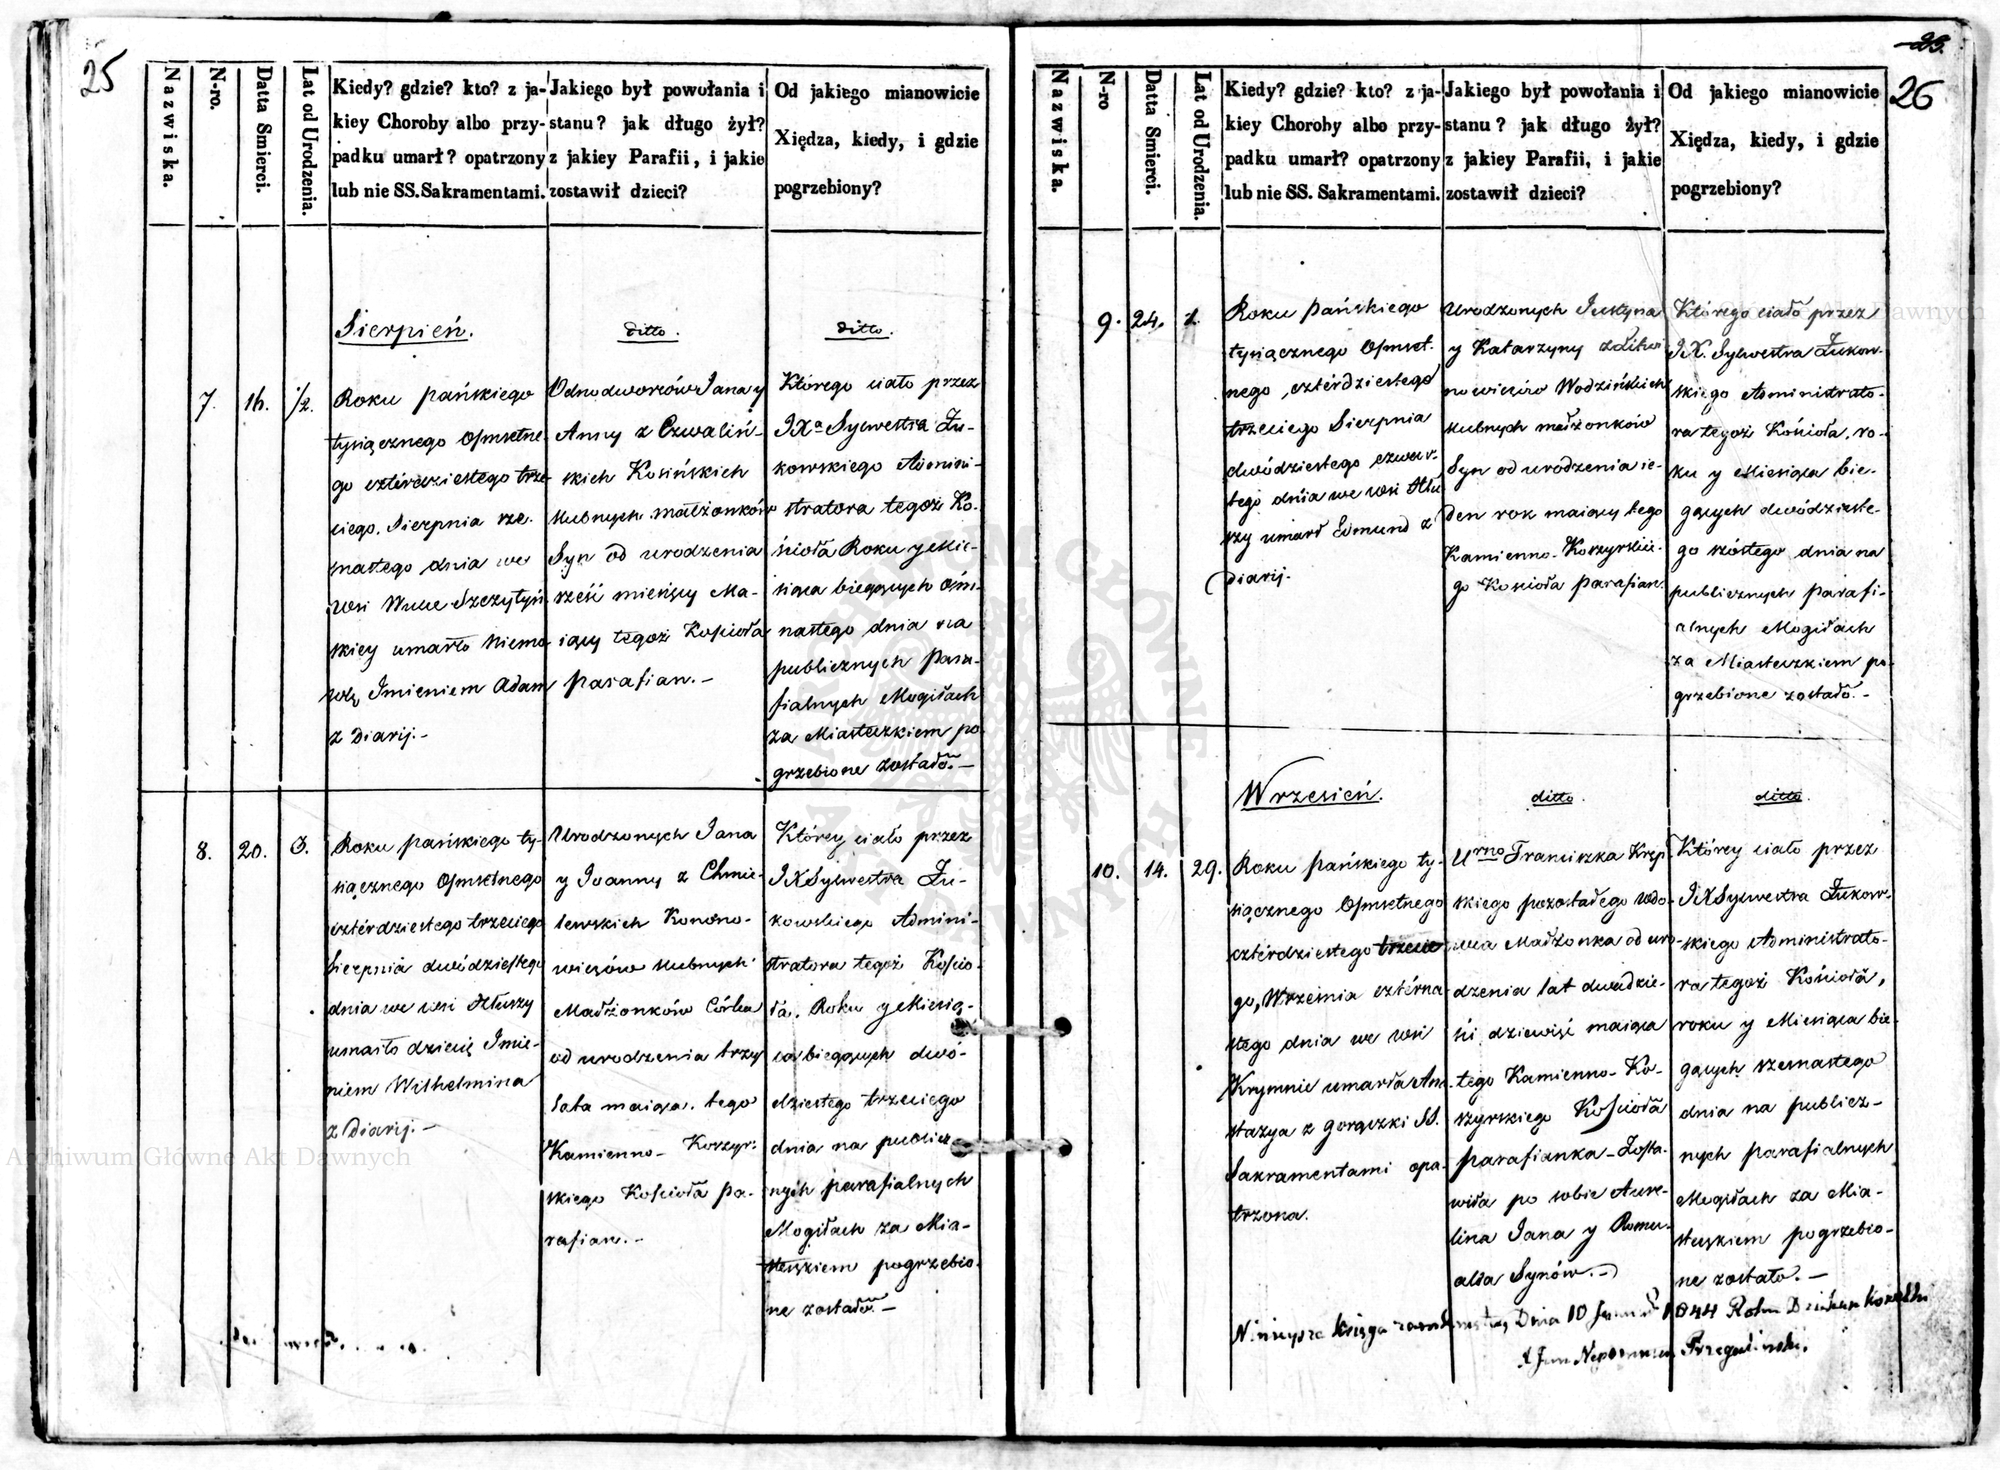 25
Nazwiska.
N-ro.
Datta Smierci.
Lat od Urodzenia.
Kiedy? gdzie? kto? z ja-
kiey Choroby albo przy-
padku umarł? opatrzony
lub nie SS. Sakramentami.
Jakiego był powołania i
stanu? jak długo żył?
z jakiey Parafii, i jakie
zostawił dzieci?
Od jakiego mianowicie
Xiędza, kiedy, i gdzie
pogrzebiony?
Sierpień.
ditto.
ditto.
7.
16.
1/2.
Roku pańskiego
tysiącznego Ośmsetne
go cztérdziestego trze
ciego, Sierpnia sze-
snastego dnia we
wsi Wulce Szczytyń
skiey umarło Niemo
wlę Imieniem Adam
z Diarij.-
Odnodworców Jana y
Anny z Czwaliń-
skich Kosińskich
ślubnych małżonków
Syn od urodzenia
sześć mieńsięcy Ma-
iący tegoż Kościoła
parafian.-
Którego ciało przez
JXa Sylwestra Żu-
kowskiego Admini-
stratora tegoż Ko-
ścioła Roku y Mie-
siąca bieżących Ośm-
nastego dnia na
publicznych para-
fialnych Mogiłach
za Miasteczkiem po
grzebione zostało.-
8.
20.
3.
Roku pańskiego ty-
siącznego Ośmsetnego
cztérdziestego trzeciego
Sierpnia dwódziestego
dnia we wsi Hłuszy
umarło dziecię Imie-
niem Wilhelmina
z Diarij.-
Urodzonych Jana
y Joanny z Chmie-
lewskich Konono-
wiczów ślubnych
Małżonków Córka
od urodzenia trzy
lata maiąca, tego
Kamienno- Koszyr-
skiego Kościoła pa-
rafian.-
Którey ciało przez
JX Sylwestra Żu-
kowskiego Admini-
stratora tegoż Kościo-
ła, Roku y Miesią-
ca bieżących dwó-
dziestego trzeciego
dnia na publicz
nych parafialnych
Mogiłach za Mia-
steczkiem pogrzebio-
ne zostało.-
26
Nazwiska.
N-ro
Datta Smierci.
Lat od Urodzenia.
Kiedy? gdzie? kto? z ja-
kiey Choroby albo przy-
padku umarł? opatrzony
lub nie SS. Sakramentami.
Jakiego był powołania i
stanu? jak długo żył?
z jakiey Parafii, i jakie
zostawił dzieci?
Od jakiego mianowicie
Xiędza, kiedy, i gdzie
pogrzebiony?
9.
24.
1.
Roku pańskiego
tysiącznego Ośmset-
nego, cztérdziestego
trzeciego Sierpnia
dwódziestego czwar-
tego dnia we wsi Hłu
szy umarł Edmund z
Diarij.
Urodzonych Justyna
y Katarzyny z Litwi
nowiczów Wodzińskich
ślubnych małżonków
Syn od urodzenia ie-
den rok maiący tego
Kamienno-Koszyrskie-
go Kościoła parafian.
Którego ciało przez
JX. Sylwestra Żukow-
skiego Administrato-
ra tegoż Kościoła, ro-
ku y Miesiąca bie-
żących dwódzieste-
go szóstego dnia na
publicznych parafi-
alnych Mogiłach
za Miasteczkiem po-
grzebione zostało.-
Wrzesień.
ditto.
ditto.
10.
14.
29.
Roku pańskiego ty-
siącznego Ośmsetnego
cztérdziestego trzecie
go, Września cztérna-
stego dnia we wsi
Krymnie umarła Ana-
stazya z gorączki SS.
Sakramentami opa-
trzona.
Urno Franciszka Krzy
skiego pozostałego wdo-
wca Małżonka od uro-
dzenia lat dwadzie-
ści dziewięć maiąca
tego Kamienno- Ko-
szyrskiego Kościoła
parafianka- Zosta-
wiła po sobie Aure-
lina Jana y Romu-
alda Synów.-
Którey ciało przez
JX Sylwestra Żukow-
skiego Administrato-
ra tegoż Kościoła,
roku y Miesiąca bie-
żących szesnastego
dnia na publicz-
nych parafialnych
Mogiłach za Mia-
steczkiem pogrzebio-
ne zostało.-
Ninieysza księga Dnia 10 1844 Roku
Archiwum Główne Akt Dawnych